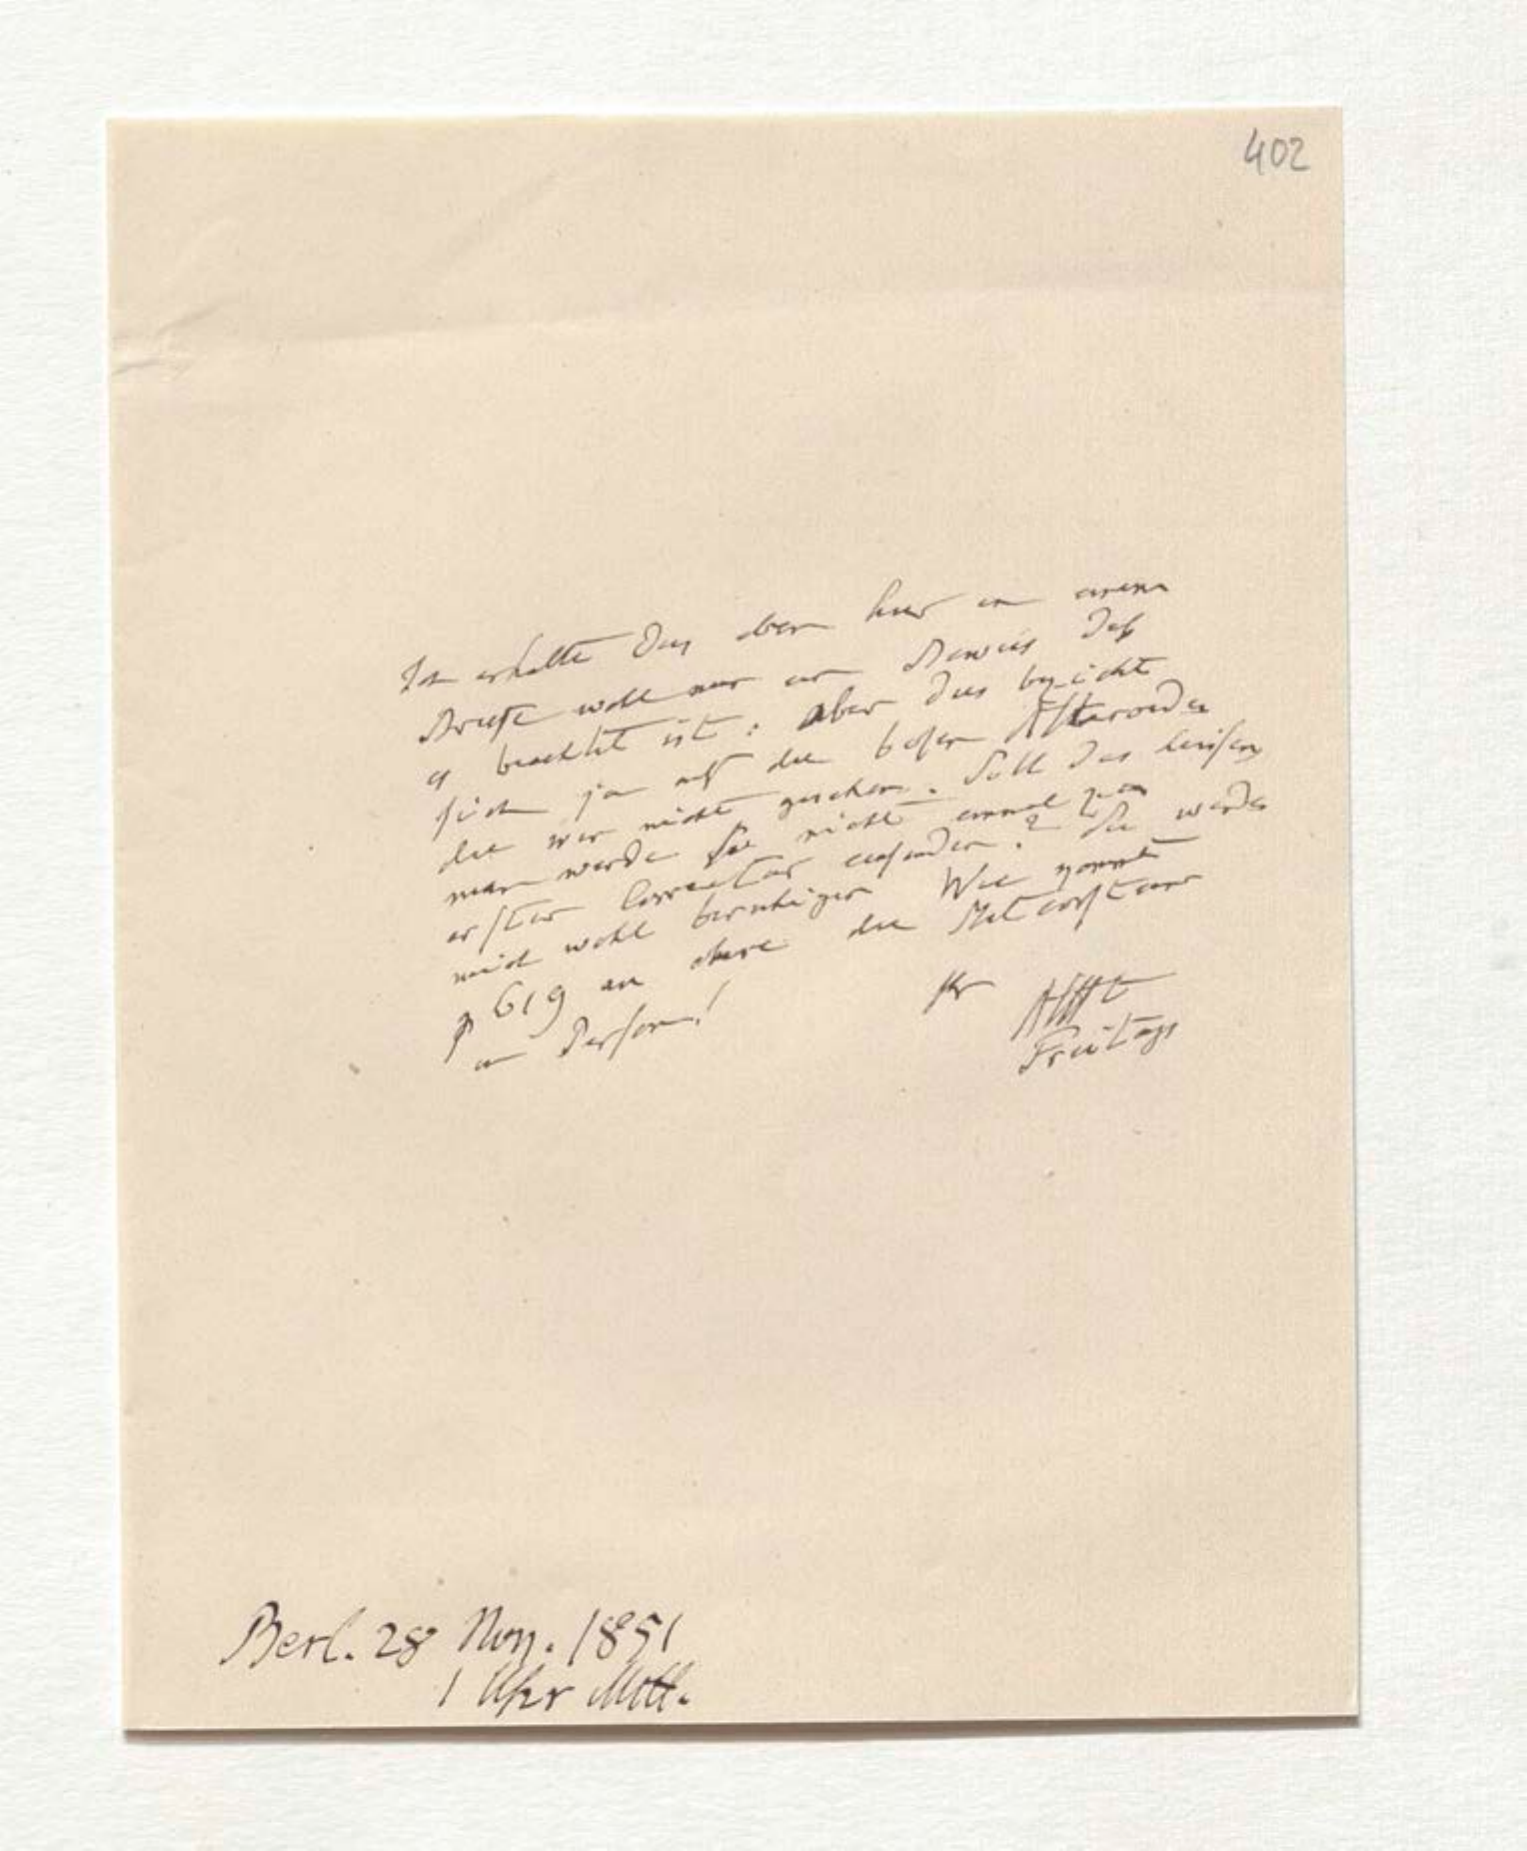 402
Ich erhalte dies eben hier in einem
Briefe wohl nur ein Beweis daß
es bezahlt ist: aber dies bezieht
sich ja auf die bösen Asteroiden
die wir nicht gesehen. Soll das heißen
man werde sie nicht einmal zur
erster Correctur einsenden? Sie werden
mich wohl beruhigen Wie kommt
p 619 an ohne die
in Person!
Ihr AHt
Freitags
Berl. 28 Nov. 1851
1 Uhr Mitt.